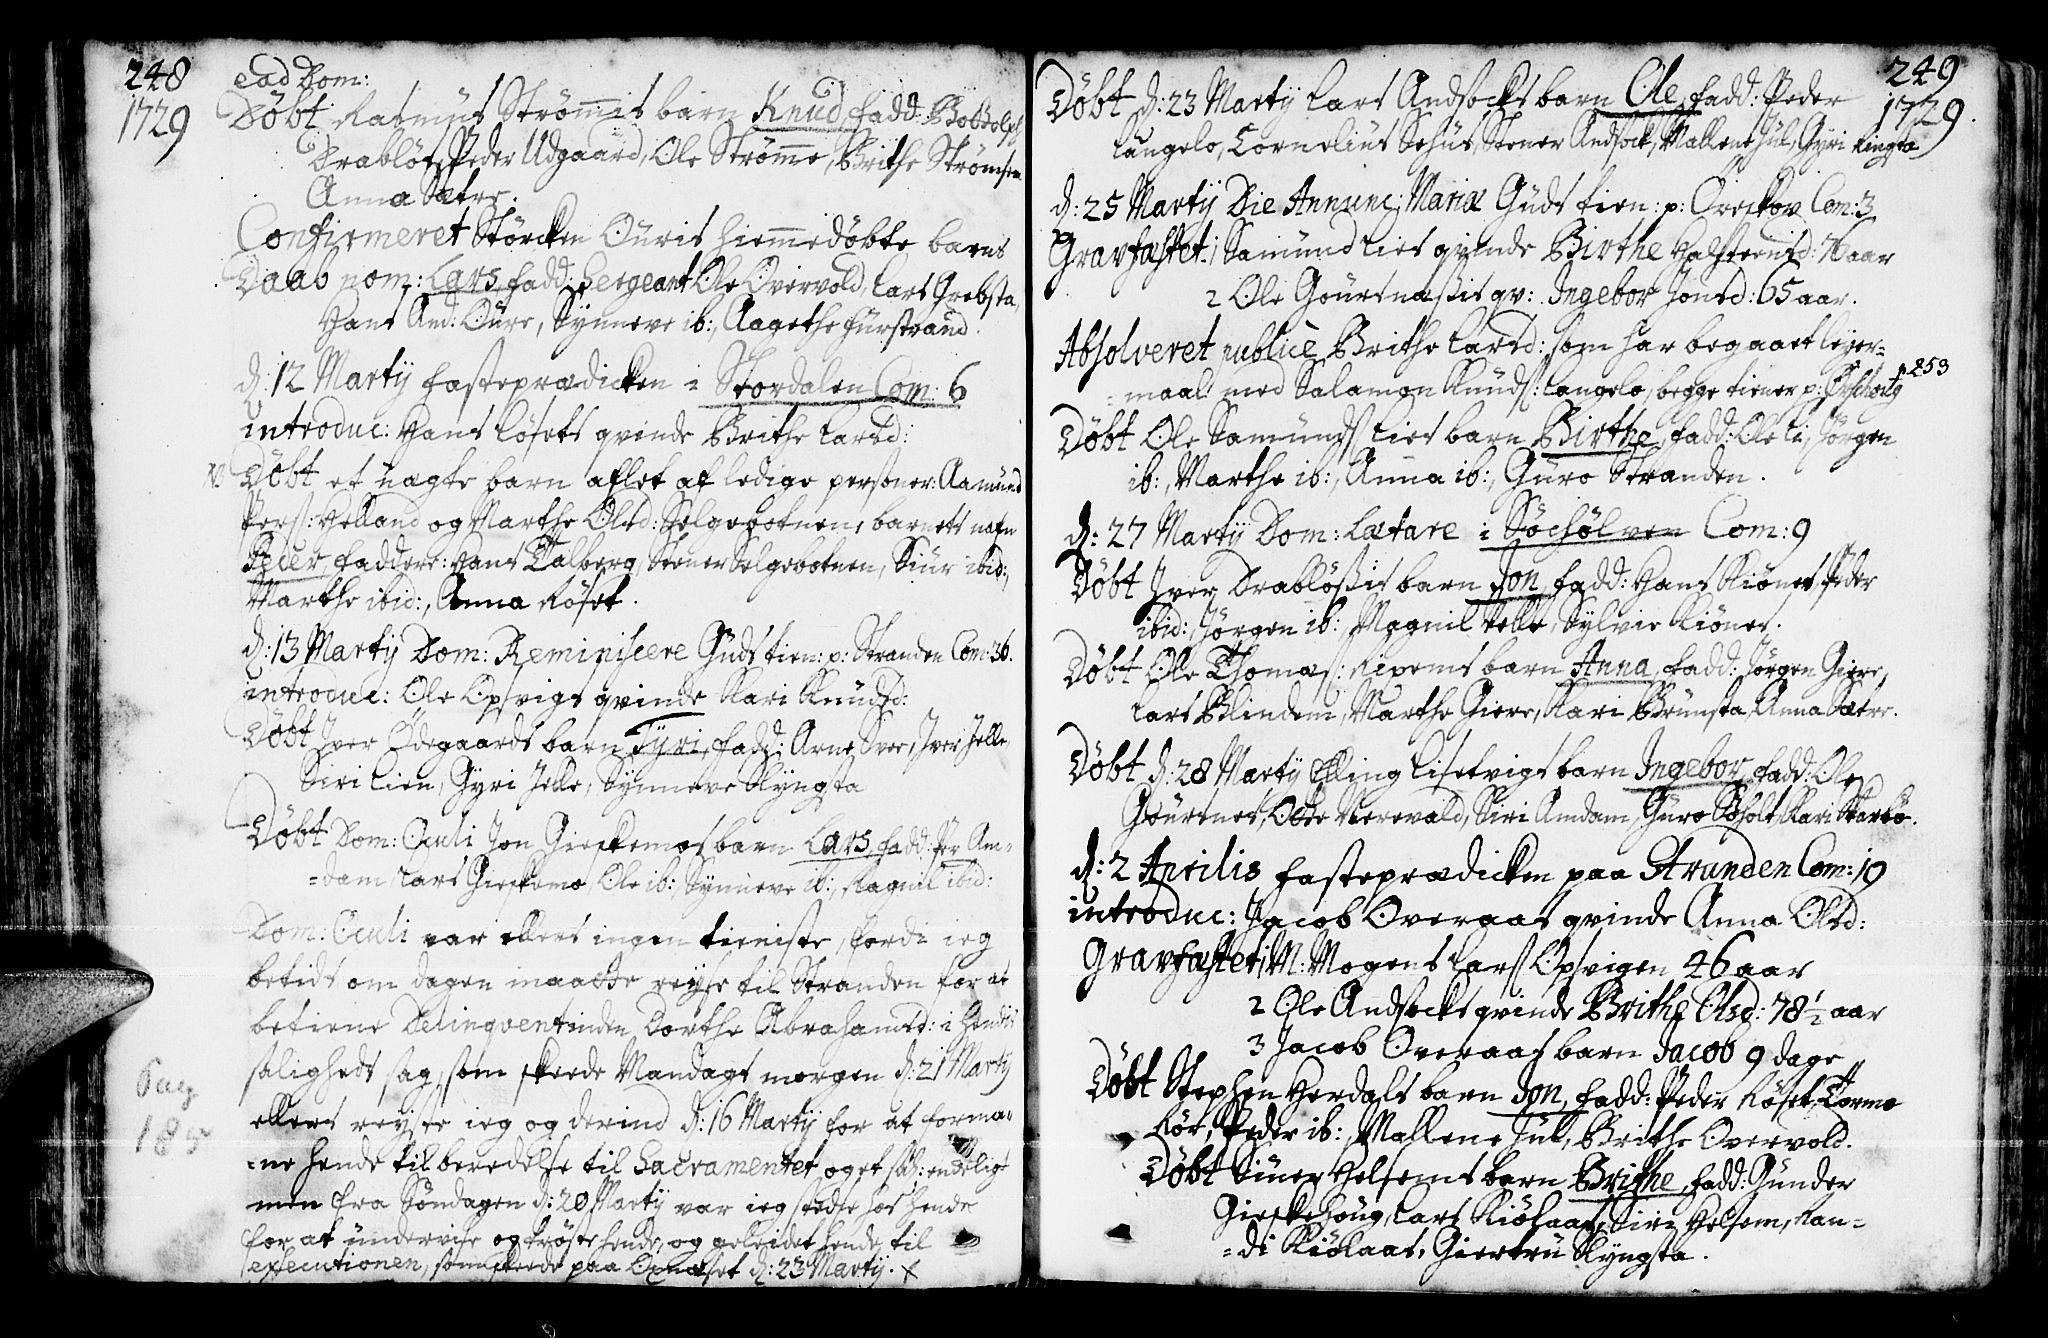 248
1729
ead Dom:
Døbt Rasmus Strømmis barn Knud, fadd: Botolph
Drabløs, Peder Udgaard, Ole Strømme, Brithe Strømsem
Anna Sætre.
Confirmeret Størcken Ouris hiemmedøbte barns
Daab nom: Lars, fadd: Sergeant Ole Overvold, Lars Grebsta,
Hans And: Oure, Synneve ib:, Aagethe Furstrand.
d: 12 Martij fasteprædicken i Stordalen Com: 6
introduc: Hans Løsets qvinde Brithe Larsd:
Døbt et uægte barn aflet af ledige personer: Aamund
Pers: Helland og Marthe Olsd: Selgebotnen, barnets nafn
Peder, faddere: Hans Talberg, Stener Selgebotnen, Siur ibid:,
Marthe ibid:, Anna Løset.
d: 13 Martij Dom: Reminiscere Guds tien: p: Stranden Com: 36.
introduc: Ole Opsvigs qvinde Kari Knudsd:
Døbt Iver Ødegaards barn Gyri, fadd: Arne Svee, Iver Jelle,
Siri Lien, Gyri Jelle, Synneve Klyngsta
Døbt Dom: Oculi Jon Gieskemos barn Lars, fadd: Per Am=
=dam, Lars Gieskemo, Ole ib:, Synneve ib:, Ragnil ibid:
Dom: Oculi var ellers ingen tieniste, fordi ieg
betids om dagen maatte reyse til Stranden for at
betiene Delinqventinden Dorthe Abrahamsd: i hendis
saligheds sag, som skeede Mandags morgen d: 21 Martij
ellers reyste ieg og derind d: 16 Martij for at forma=
=ne hende til beredelse til Sacramentet
men fra Søndagen d: 20 Martij var ieg stedse hos hende
for at undervise og trøste hende, og geleidet hende til
executionen, som skeede paa d: 23 Martij.
Pag
185
249
1729.
Døbt d: 23 Martij Lars Andsocks barn Ole, fadd: Peder
Langelo, Cornelius Sehus, Stener Andsock, Mallene Jul, Gyri Ringsta
d: 25 Martij Die Annunc: Mariæ Guds tien: p: Ørschov Com: 3
Gravfæstet. 1 Samund Lies qvinde Birthe Halsteensd: 76 aar
2 Ole Gourtnæssis qv: Ingebor Jonsd: 65 aar.
Absolveret publice Brithe Larsd: som har begaaet leyer=
=maal med Salamon Knuds: Langelo, begge tiener p: p. 253
Døbt Ole Samunds Lies barn Birthe, fadd: Ole Li, Jørgen
ib:, Marthe ib:, Anna ib:, Guro Stranden.
d: 27 Martij Dom: Lætare i Søchølven Com: 9
Døbt Iver Drabløssis barn Jon, fadd: Hans Kiønes, Peder
ibid:, Jørgen ib:, Magnil Velle, Sylvie Kiønes.
Døbt Ole Thomæs: Ripems barn Anna, fadd: Jørgen Giere,
Lars Blindem, Marthe Giere, Kari Brunsta, Anna Sætre.
Døbt d: 28 Martij Elling Lisetvigs barn Ingebor, fadd: Ole
Gourtnes, Otte Nerevald, Siri Amdam, Guro Søholt, Kari Skarbø.
d: 2 Aprilis fasteprædicken paa Stranden Com: 19
introduc: Jacob Overaas qvinde Anna Olsd:
Gravfæstet, 1 M: Mogens Lars: Opsvigen 46 aar
2 Ole Andsocks qvinde Brithe Olsd: 78 1/2 aar
3 Jacob Overaas barn Jacob 9 dage
Døbt Stephen Herdals barn Jon, fadd: Peder Røset, Tormo
Rør, Peder ib:, Mallene Jul, Brithe Overvold.
Døbt Siuer Helsems barn Brithe, fadd: Gunder
Gieskehoug, Lars Kiølaas, Siri Helsem, Ran=
=di Kiølaas, Giertru Klyngsta.